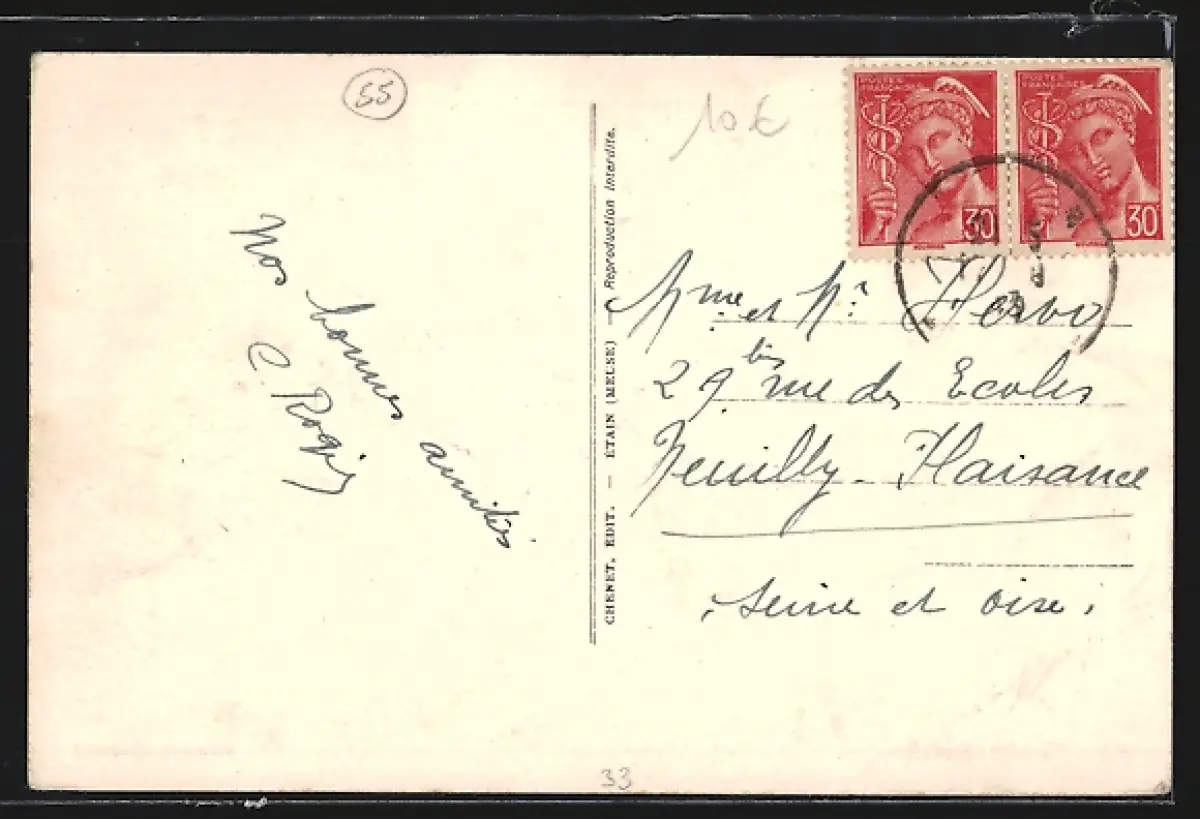 55
10 €
POSTES FRANÇAISES
30
POSTES FRANÇAISES
30
Nos bonnes amitiés
C.
CHENET, EDIT. — ETAIN (MEUSE) — Reproduction Interdite.
Mme et Mr Hervo
29 bis rue des Ecoles
Neuilly-Plaisance
Seine et Oise.
33